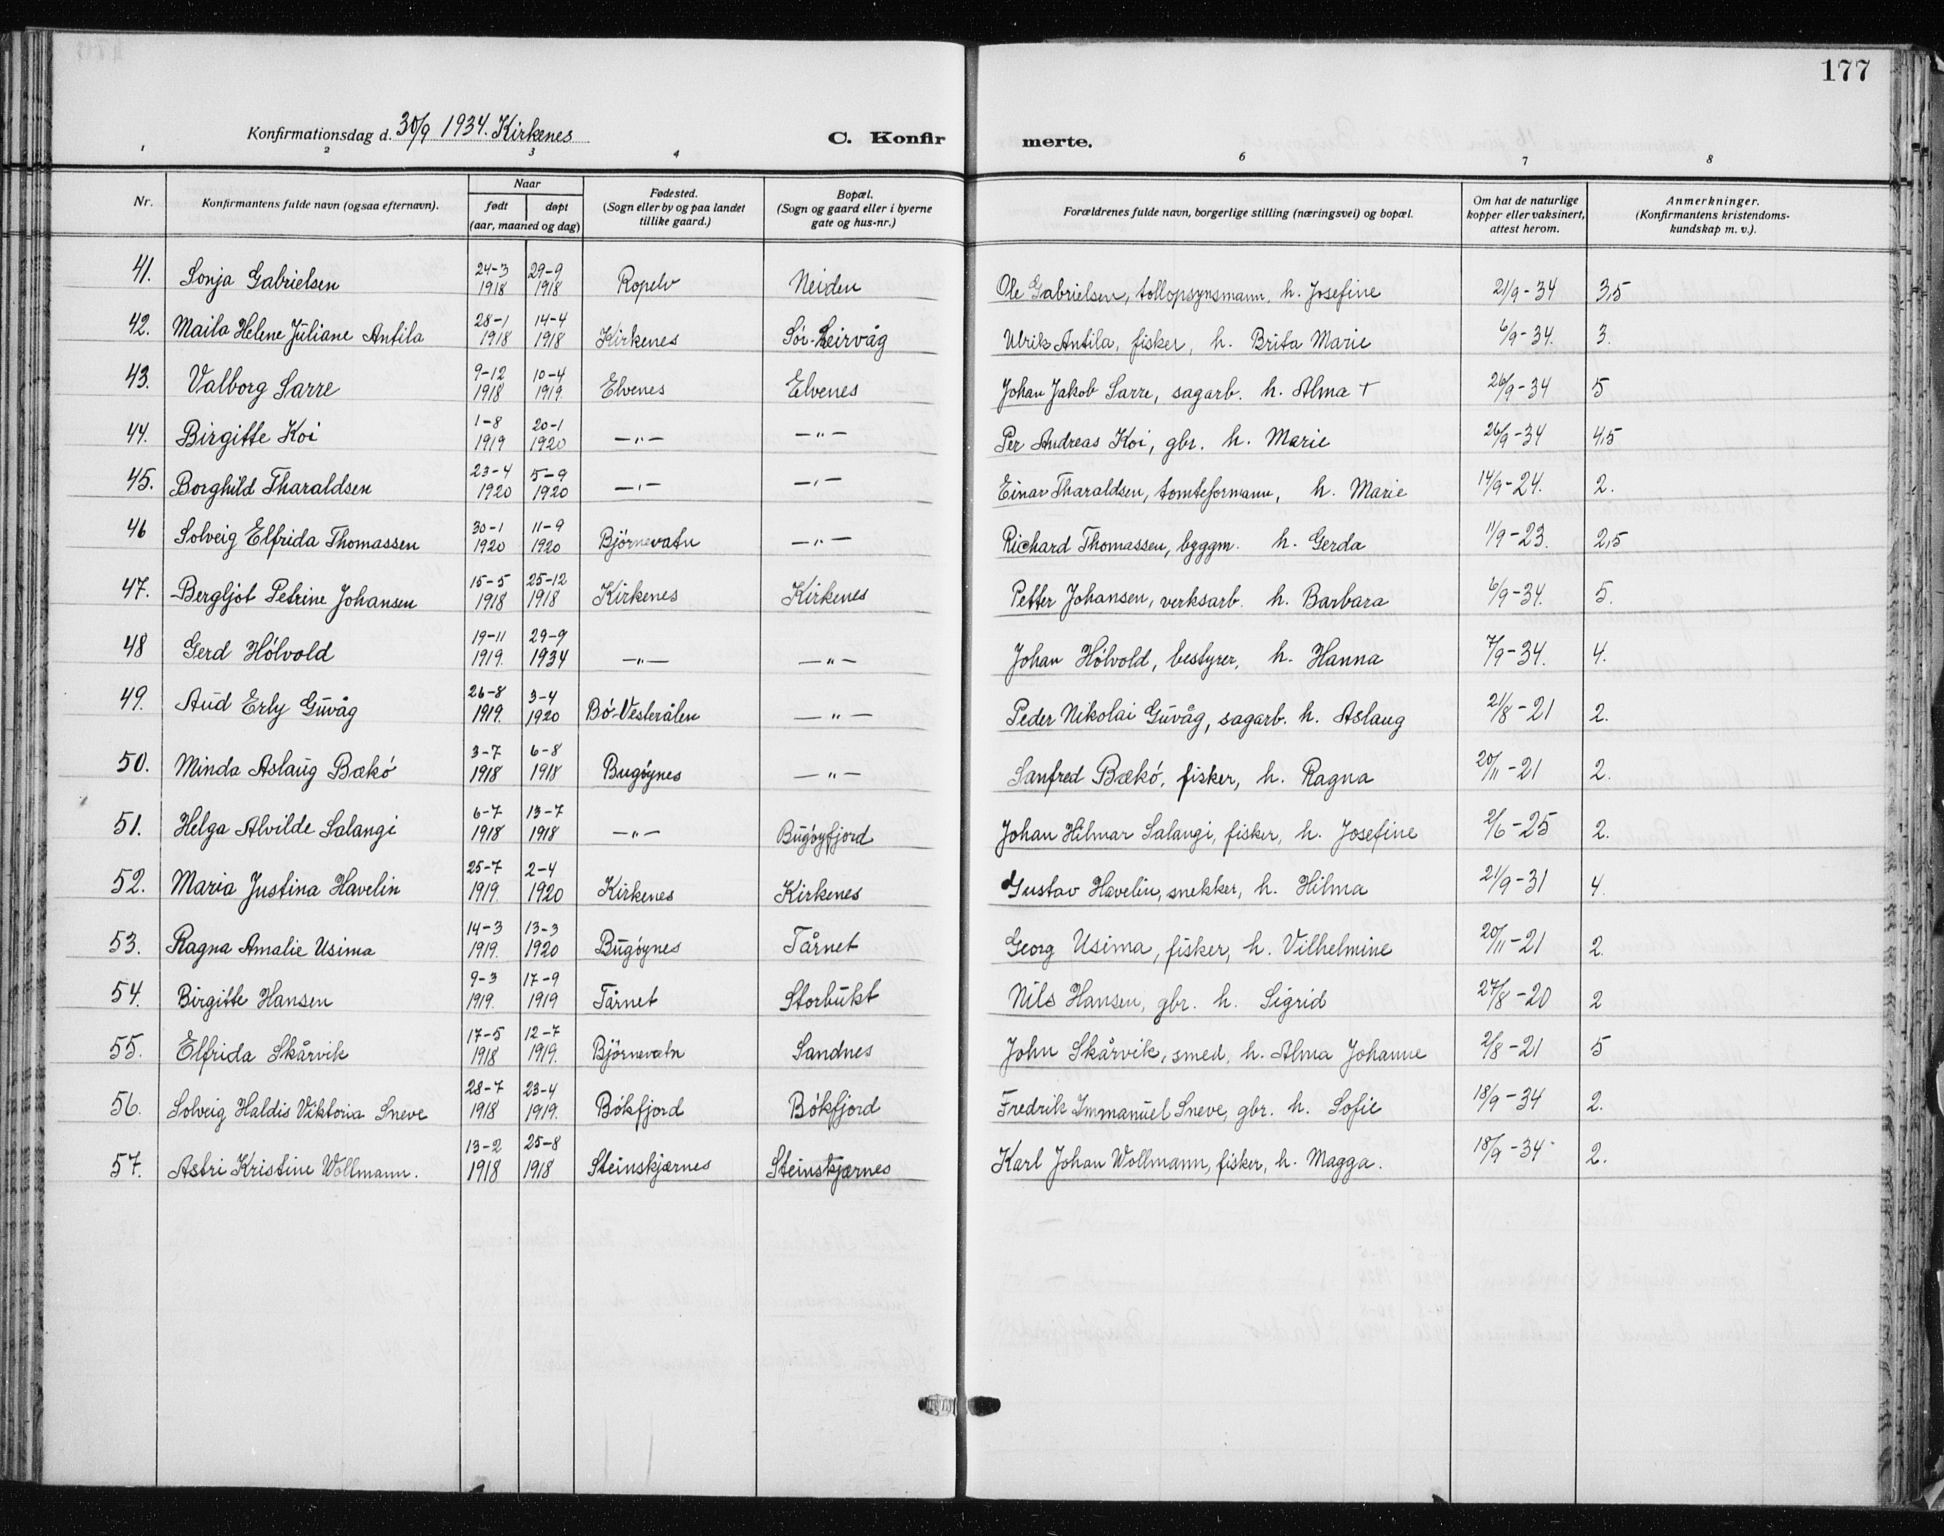 177
Konfirmationsdag d. 30/9 1934. Kirkenes
C. Konfirmerte.
1 2 3 4 6 7 8
Nr. | Konfirmantens fulde navn (ogsaa efternavn). | Naar født | døpt (aar, maaned og dag) | Fødested. (Sogn eller by og paa landet tillike gaard.) | Bopæl. (Sogn og gaard eller i byerne gate og hus-nr.) | Forældrenes fulde navn, borgerlige stilling (næringsvei) og bopæl. | Om hat de naturlige kopper eller vaksinert, attest herom. | Anmerkninger. (Konfirmantens kristendomskundskap m. v.).
41. Sonja Gabrielsen 24-3 1918 29-9 1918 Ropelv Neiden Ole Gabrielsen, tollopsynsmann, h. Josefine 21/9-34 3,5
42. Maila Helene Juliane Antila 28-1 1918 14-4 1918 Kirkenes Sør-Leirvåg Ulrik Antila, fisker, h. Brita Marie 6/9-34. 3.
43. Valborg Sarre 9-12 1918 10-4 1919. Elvenes Elvenes Johan Jakob Sarre, sagarb. h. Alma + 26/9-34 5
44. Birgitte Koi 1-8 1919 20-1 1920 —"— —"— Per Andreas Koi, gbr. h. Marie 26/9-34 4,5
45. Borghild Tharaldsen 23-4 1920 5-9 1920 —"— —"— Einar Tharaldsen, tomteformann, h. Marie 14/9-24. 2.
46 Solveig Elfrida Thomassen 30-1 1920 11-9 1920 Björnevatn —"— Richard Thomassen, byggm. h. Gerda 11/9-23. 2,5
47. Bergljot Petrine Johansen 15-5 1918 25-12 1918 Kirkenes Kirkenes Petter Johansen, verksarb. h. Barbara 6/9-34. 5.
48 Gerd Hólvold 19-11 1919. 29-9 1934 —"— —"— Johan Hólvold, bestyrer, h. Hanna 7/9-34. 4.
49. Aud Erly Guvåg 26-8 1919. 3-4 1920 Bó-Vesterålen —"— Peder Nikolai Guvåg, sagarb. h. Aslaug 21/8-21 2.
50. Minda Aslaug Bækó 3-7 1918 6-8 1918 Bugóynes —"— Sanfred Bækó, fisker, h. Ragna 20/11-21 2.
51. Helga Alvilde Salangi 6-7 1918 13-7 1918 —"— Bugóyfjord Johan Hilmar Salangi, fisker, h. Josefine 2/6-25 2.
52. Maria Justina Havelin 25-7 1919. 2-4 1920 Kirkenes Kirkenes Gustav Havelin, snekker, h. Hilma 21/9-31 4.
53. Ragna Amalie Usima 14-3 1919. 13-3 1920 Bugóynes Tårnet Georg Usima, fisker, h. Vilhelmine 20/11-21 2.
54. Birgitte Hansen 9-3 1919. 17-9 1919 Tårnet Storbukt Nils Hansen, gbr. h. Sigrid 27/8-20 2
55. Elfrida Skårvik 17-5 1918 12-7 1919. Björnevatn Sandnes John Skårvik, smed, h. Alma Johanne 2/8-21 5
56. Solveig Haldis Viktoria Sneve 28-7 1918 23-4 1919. Bókfjord Bókfjord Fredrik Immanuel Sneve, gbr. h. Sofie 18/9-34 2.
57. Astri Kristine Wollmann. 13-2 1918 25-8 1918 Steinskjærnes Steinskjærnes Karl Johan Wollmann, fisker, h. Magga. 18/9-34 2.